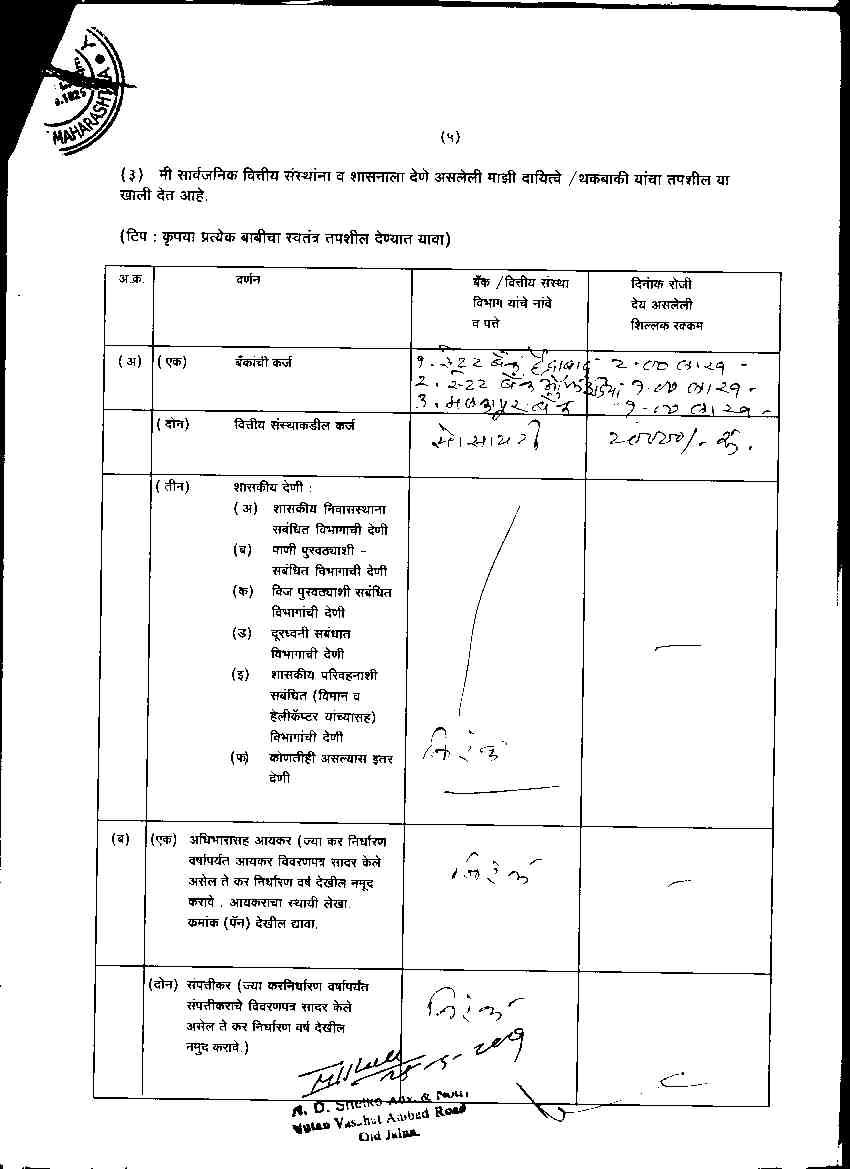 MAHARASHTRA
(५)
(३) मी सार्वजनिक वित्तीय संस्थांना व शासनाला देणे असलेली माझी दायित्वे /थकबाकी यांचा तपशील या
खाली देत आहे.
(टिप : कृपया प्रत्येक बाबीचा स्वतंत्र तपशील देण्यात यावा)
अ.क्र. वर्णन बँक /वित्तीय संस्था दिनांक रोजी
विभाग यांचे नांवे देय असलेली
व पत्ते शिल्लक रक्कम
(अ) (एक) बँकांची कर्ज १. स्टेट बँक हैद्राबाद २.०० लाख -
२. स्टेट बँक ऑफ इंडिया १.०० लाख -
३. मलकापूर बँक १.०० लाख -
(दोन) वित्तीय संस्थाकडील कर्ज सोसायटी २००००/- रु.
(तीन) शासकीय देणी :
(अ) शासकीय निवासस्थाना
सबंधित विभागाची देणी
(ब) पाणी पुरवठ्याशी -
सबंधित विभागाची देणी
(क) विज पुरवठ्याशी सबंधित
विभागांची देणी
(ड) दूरध्वनी सबंधात
विभागाची देणी
(इ) शासकीय परिवहनाशी
सबंधित (विमान व
हेलीकॅप्टर यांच्यासह)
विभागांची देणी
(फ) कोणतीही असल्यास इतर निरंक
देणी
(ब) (एक) अधिभारासह आयकर (ज्या कर निर्धारण
वर्षापर्यंत आयकर विवरणपत्र सादर केले
असेल ते कर निर्धारण वर्ष देखील नमूद निरंक
करावे . आयकराचा स्थायी लेखा
कमांक (पॅन) देखील द्यावा.
(दोन) संपत्तीकर (ज्या करनिर्धारण वर्षापर्यंत
संपत्तीकराचे विवरणपत्र सादर केले निरंक
असेल ते कर निर्धारण वर्ष देखील
नमुद करावे.)
A. D. Adv. &
Road
Old Jalna